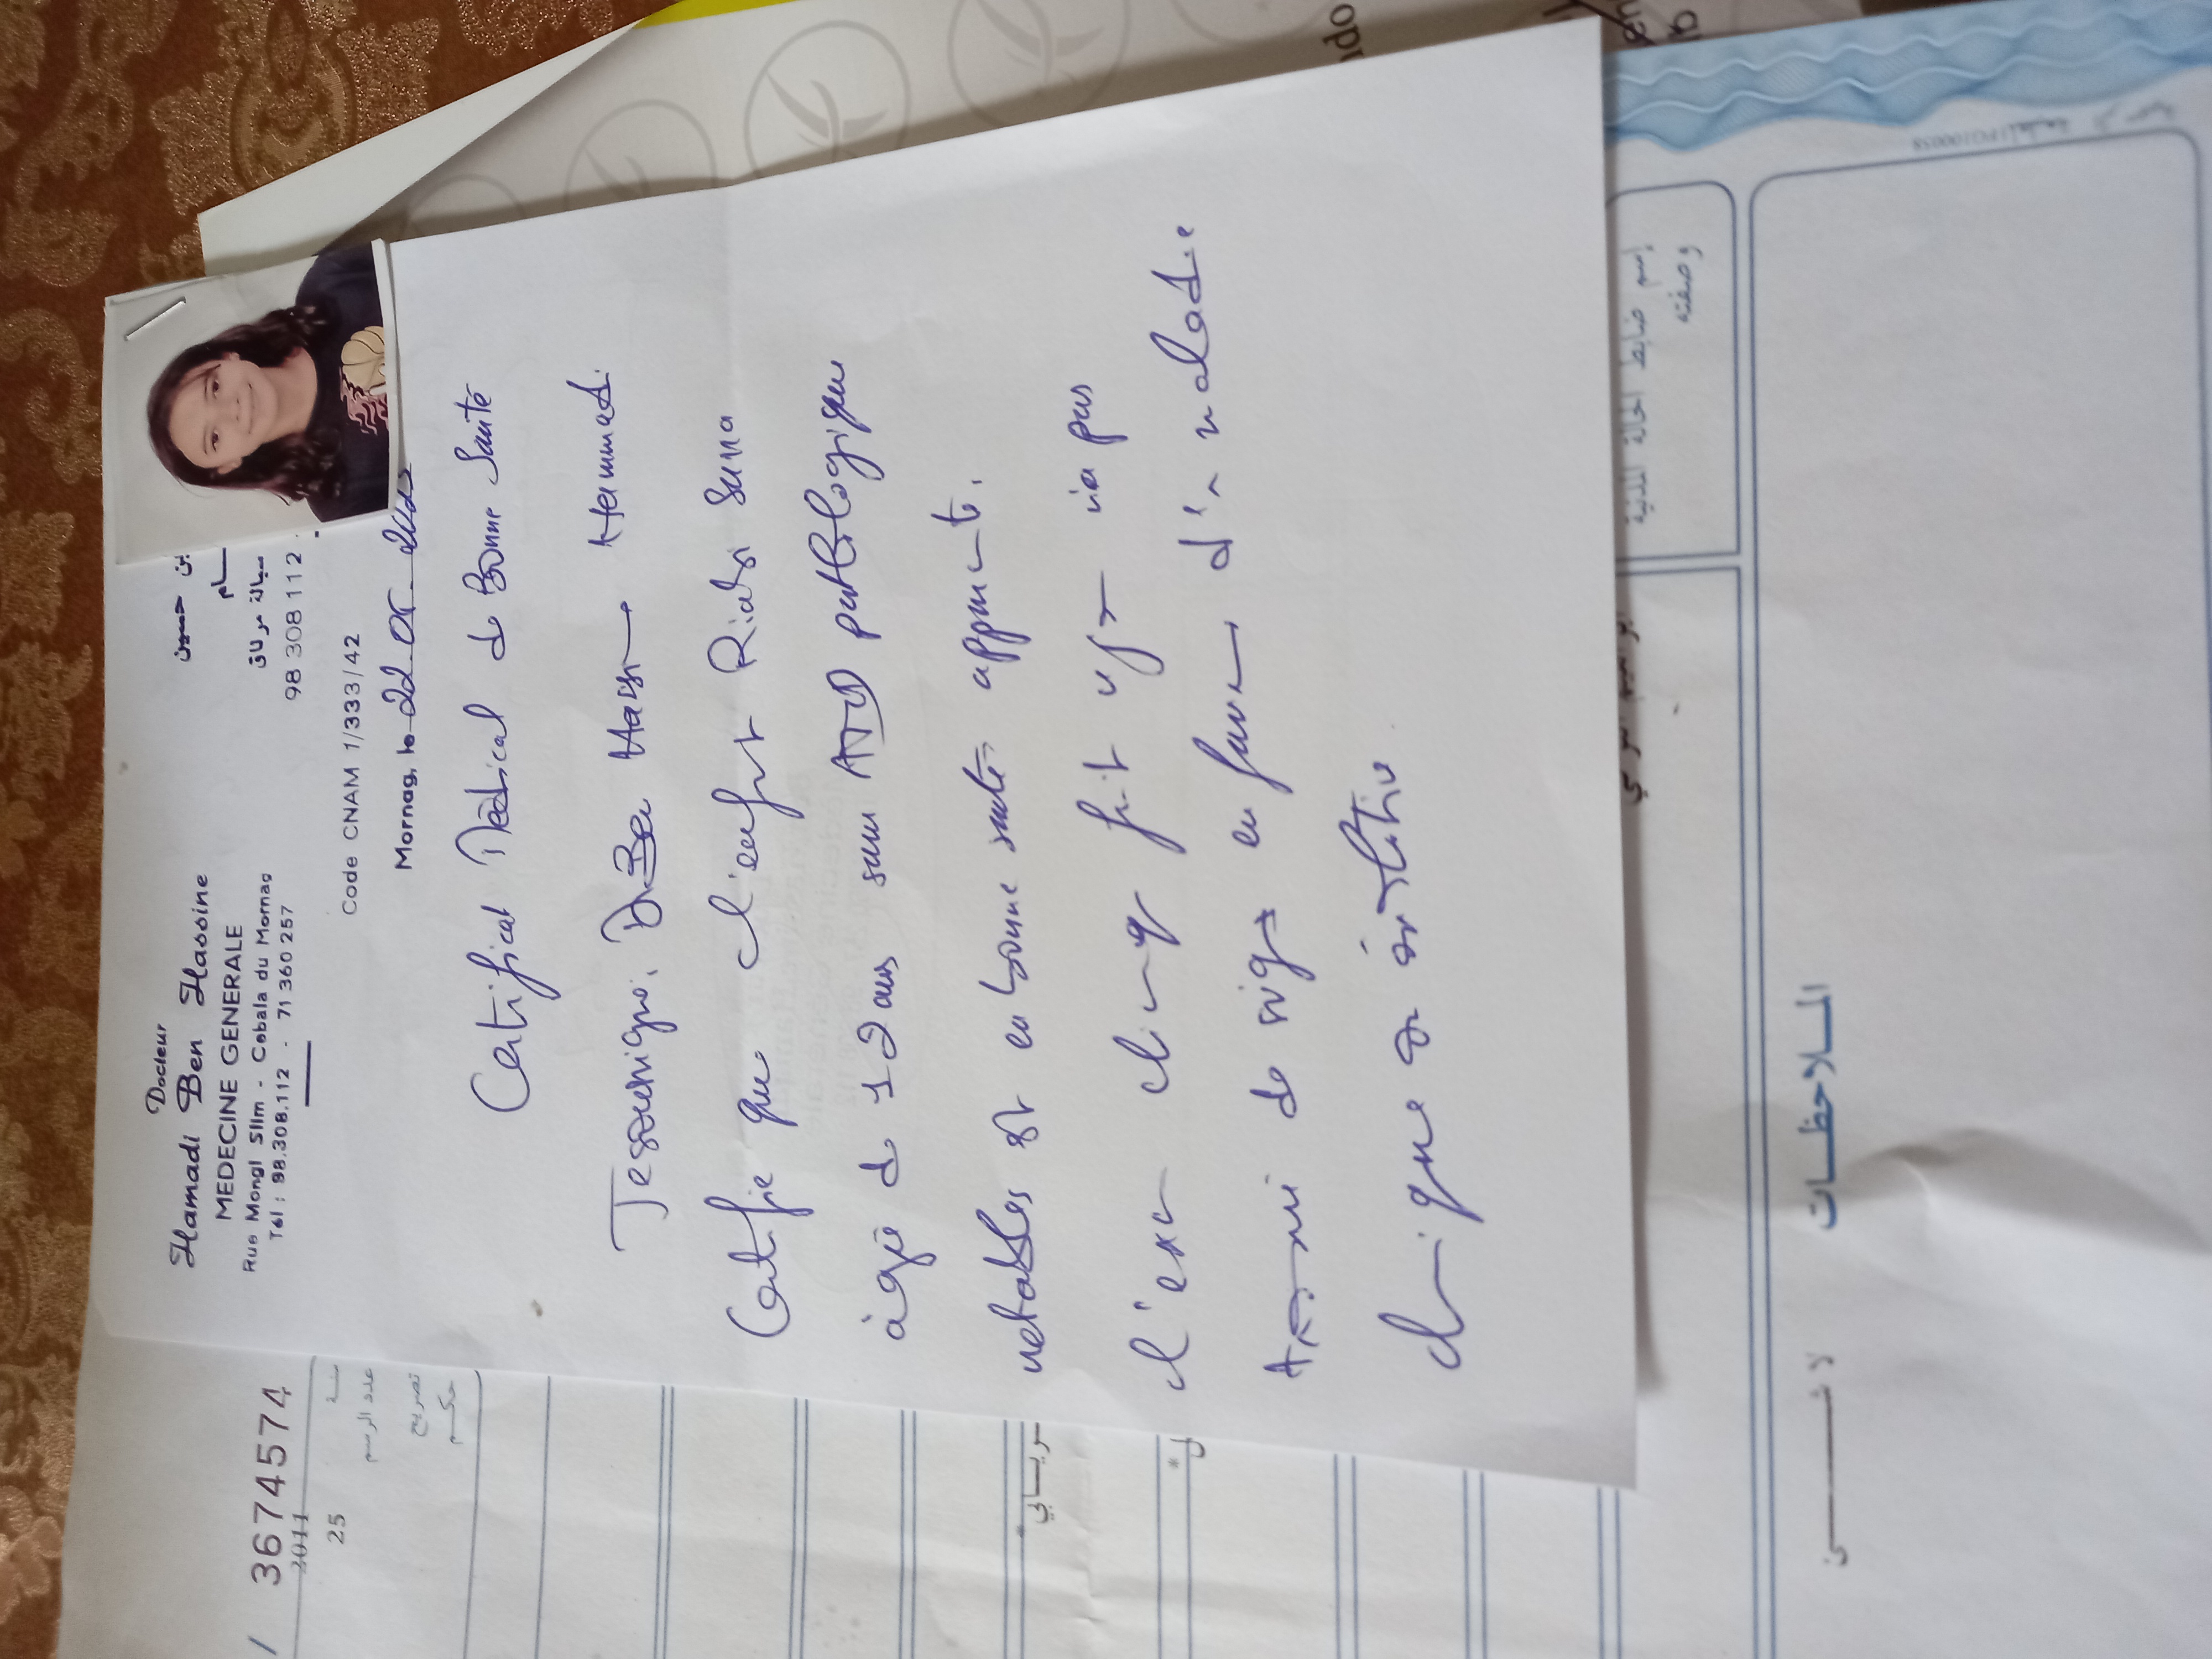 Docteur
Hamadi Ben Hassine
MEDECINE GENERALE
Rue Mongi Slim - Cebala du Mornag
Tél : 98.308.112 - 71 360 257
98 308 112
Code CNAM 1/333/42
Mornag, le 22
Certificat Médical de Bonne Santé
Jessousigné. Dr Ben Hassen Hammadi
Certifie que l'enfant Riahi
âgée de 12 ans sans ATCD pathologiques
notables est en bonne santé apparente.
l'examen clinique fait ce jour n'a pas
de signes en faveur d'une maladie
clinique ou évolutive
3674574
2011
سنة
25
عدد الرسم
تصريح
حكم
إسم ضابط الحالة المدنية
وصفته
الملاحظات
لا شيء